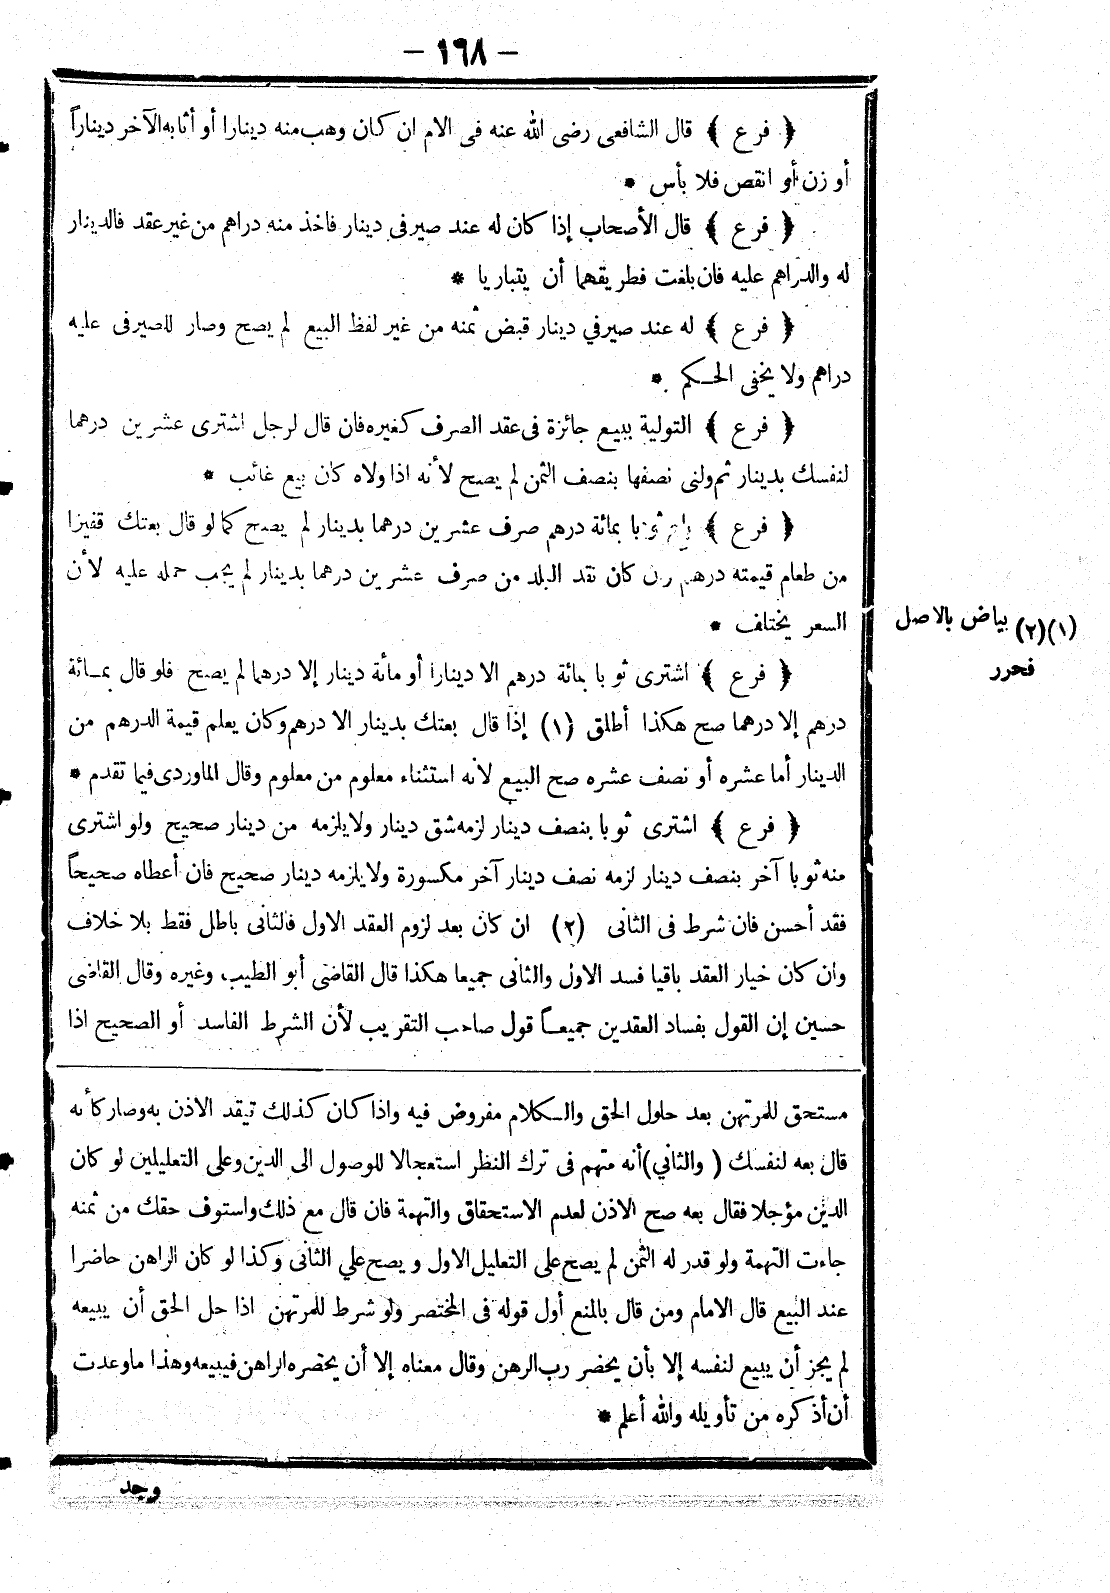 — ١٦٨ —
﴿ فرع ﴾ قال الشافعى رضى الله عنه فى الام ان كان وهب منه دينارا أو أثابه الآخر ديناراً
أو زن أو انقص فلا بأس *
﴿ فرع ﴾ قال الأصحاب إذا كان له عند صيرفى دينار فاخذ منه دراهم من غير عقد فالدينار
له والدراهم عليه فان بلغت فطريقهما أن يتباريا *
﴿ فرع ﴾ له عند صيرفي دينار قبض ثمنه من غير لفظ البيع لم يصح وصار للصيرفى عليه
دراهم ولا يخفى الحكم *
﴿ فرع ﴾ التولية ببيع جائزة فى عقد الصرف كغيره فان قال لرجل اشترى عشرين درهما
لنفسك بدينار ثم ولنى نصفها بنصف الثمن لم يصح لأنه اذا ولاه كان بيع غائب *
﴿ فرع ﴾ باع ثوبا بمائة درهم صرف عشرين درهما بدينار لم يصح كما لو قال بعتك قفيزا
من طعام قيمته درهم وان كان نقد البلد من صرف عشرين درهما بدينار لم يجب حمله عليه لأن
السعر يختلف *
﴿ فرع ﴾ اشترى ثوبا بمائة درهم الا دينارا أو مائة دينار إلا درهما لم يصح فلو قال بمائة
درهم إلا درهما صح هكذا أطلق (١) إذا قال بعتك بدينار الا درهم وكان يعلم قيمة الدرهم من
الدينار أما عشره أو نصف عشره صح البيع لأنه استثناء معلوم من معلوم وقال الماوردى فيما تقدم *
﴿ فرع ﴾ اشترى ثوبا بنصف دينار لزمه شق دينار ولا يلزمه من دينار صحيح ولو اشترى
منه ثوبا آخر بنصف دينار لزمه نصف دينار آخر مكسورة ولا يلزمه دينار صحيح فان أعطاه صحيحاً
فقد أحسن فان شرط فى الثانى (٢) ان كان بعد لزوم العقد الاول فالثانى باطل فقط بلا خلاف
وان كان خيار العقد باقيا فسد الاول والثانى جميعا هكذا قال القاضى أبو الطيب وغيره وقال القاضى
حسين إن القول بفساد العقدين جميعاً قول صاحب التقريب لأن الشرط الفاسد أو الصحيح اذا
(١)(٢) بياض بالاصل
فحرر
مستحق للمرتهن بعد حلول الحق والكلام مفروض فيه واذا كان كذلك تيقد الاذن به وصار كأنه
قال بعه لنفسك ( والثاني) أنه متهم فى ترك النظر استعجالا للوصول الى الدين وعلى التعليلين لو كان
الدين مؤجلا فقال بعه صح الاذن لعدم الاستحقاق والتهمة فان قال مع ذلك واستوف حقك من ثمنه
جاءت التهمة ولو قدر له الثمن لم يصح على التعليل الاول ويصح علي الثانى وكذا لو كان الراهن حاضرا
عند البيع قال الامام ومن قال بالمنع أول قوله فى المختصر ولو شرط للمرتهن اذا حل الحق أن يبيعه
لم يجز أن يبيع لنفسه إلا بأن يحضر رب الرهن وقال معناه إلا أن يحضره الراهن فيبيعه وهذا ما وعدت
أن أذكره من تأويله والله أعلم *
وجد